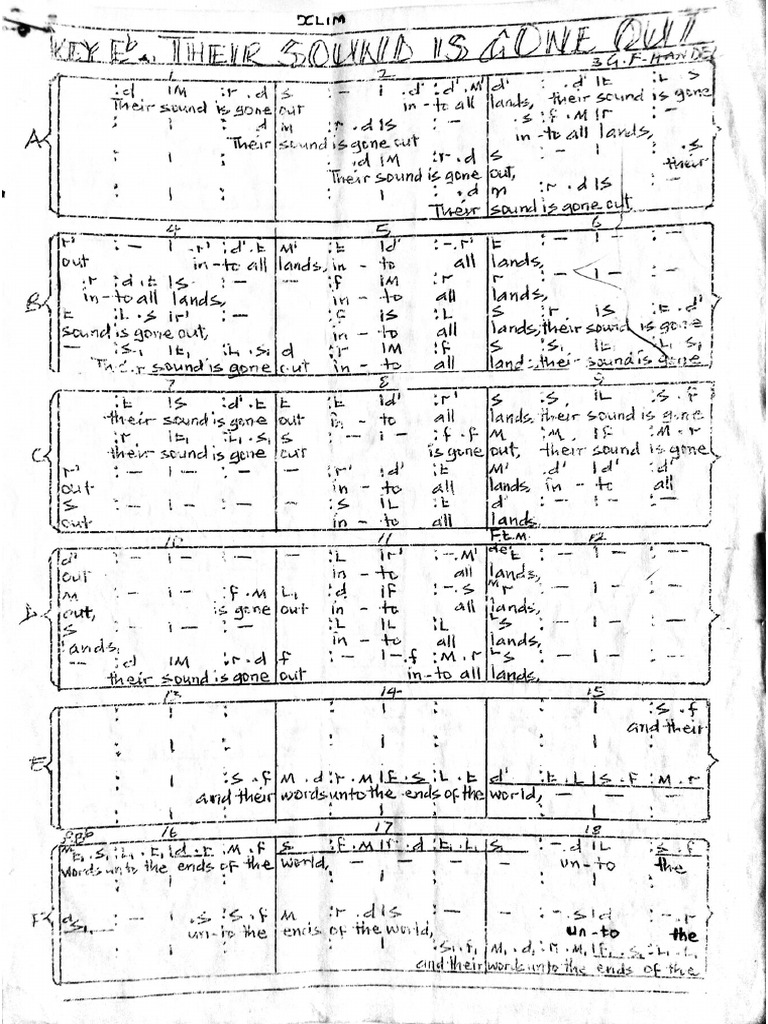 XLIM
KEY Eb. THEIR SOUND IS GONE OUT
G.F. HANDEL
1 2 3
:d IM :r .d s :- I :d' :d'.M' d' : .d' It :L .S
Their sound is gone out in-to all lands, their sound is gone
: I : .d m :r .d Is :- .s :f .M Ir :
Their sound is gone out in-to all lands,
.d IM :r .d s :- I - : .s
Their sound is gone out, their
: I : : I : .d m :r .d Is :-
Their sound is gone out
A
4 5 6
r' :- I :r' :d'.t M' :t Id' :-.r' t :- I - :-
out in-to all lands, in - to all lands,
.r :d.t Is :- - :f IM :r r :- I - :-
in-to all lands, in - to all lands,
t :L .s Ir' :- :f Is :L s :r Is :t .d'
sound is gone out, in - to all lands, their sound is gone
- :s, It, :L, .s, d :r IM :f s :s, It, :L, .s,
Their sound is gone out in - to all lands, their sound is gone
B
7 8 9
:t Is :d'.t t :t Id' :r' s :s, IL :s .f
their sound is gone out in - to all lands, their sound is gone
:r It, :L, .s, s :- I - :f .f M :M, If :M .r
their sound is gone out is gone out, their sound is gone
r' :- I - :- :r' :d' :t M' :d' Id' :d'
out in - to all lands, in - to all
s :- I - :- :s IL :t d' :- I - :-
out in - to all lands.
C
10 11 12
F.t.M.
d' :- I - :- :L Ir' :-.M' de't :- I - :-
out in - to all lands,
m :- I :f .M L, :d If :-.s Mr :- I - :-
out, is gone out in - to all lands,
s :- I - :- :L IL :L Ls :- I - :-
lands. in - to all lands,
- :d IM :r .d f :- I - .f :M .r Ls :- I - :-
their sound is gone out in-to all lands,
13 14 15
:s .f
and their
E
:s .f M .d :r .M If .s :L .t d' :t .L Is .f :M .r
and their words unto the ends of the world, - - -
16 17 18
words unto the ends of the world, - - - - - un-to the
F
d s, :- I .s :s .f M :r .d Is :- - :- .s Id :- .r
un-to the ends of the world, un-to the
:s, .f, M, .d, :r, .M, If, .s, :L, .t,
and their words unto the ends of the